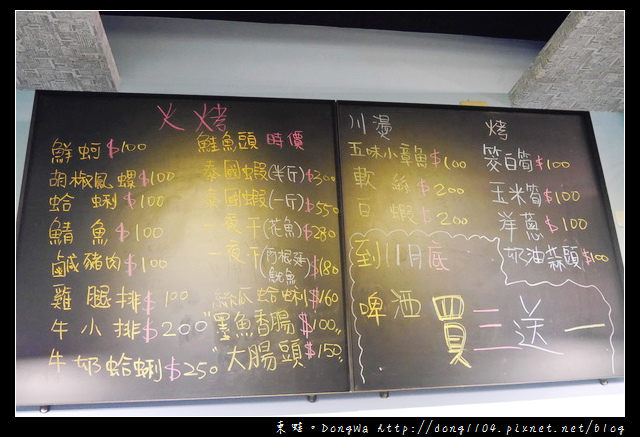 火烤
鮮蚵$100
胡椒鳳螺$100
蛤蜊$100
鯖魚$100
鹹豬肉$100
雞腿排$100
牛小排$200
牛奶蛤蜊$250
鮭魚頭 時價
泰國蝦(半斤)$300
泰國蝦(一斤)$550
一夜干(花魚)$280
一夜干 魷魚$180
絲瓜蛤蜊$160
"墨魚香腸$100"
大腸頭$150
川燙
五味小章魚$100
軟絲$200
白蝦$200
烤
筊白筍$100
玉米筍$100
洋蔥$100
奶油蒜頭$100
到11月底
啤酒買三送一
東蛙。DongWa http://dong1104.pixnet.net/blog